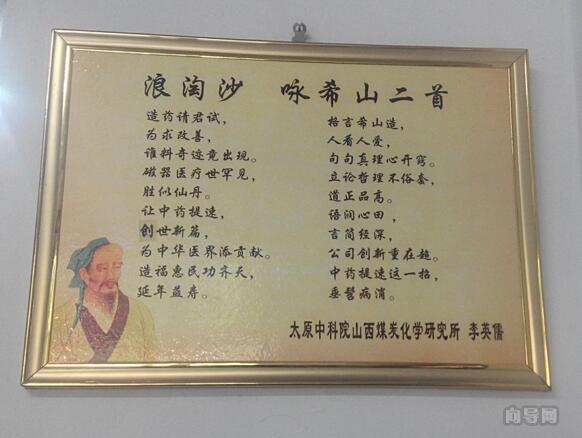 浪淘沙 咏希山二首
造药请君试，
为求改善，
谁料奇迹竟出现。
磁器医疗世罕见，
胜似仙丹。
让中药提速，
创世新篇，
为中华医界添贡献。
造福惠民功齐天，
延年益寿。
格言希山造，
人看人爱，
句句真理心开窍。
立论哲理不俗套，
道正品高。
语润心田，
言简经深，
公司创新重在超。
中药提速这一招，
委髻病消。
太原中科院山西煤炭化学研究所 李英儒
向导网